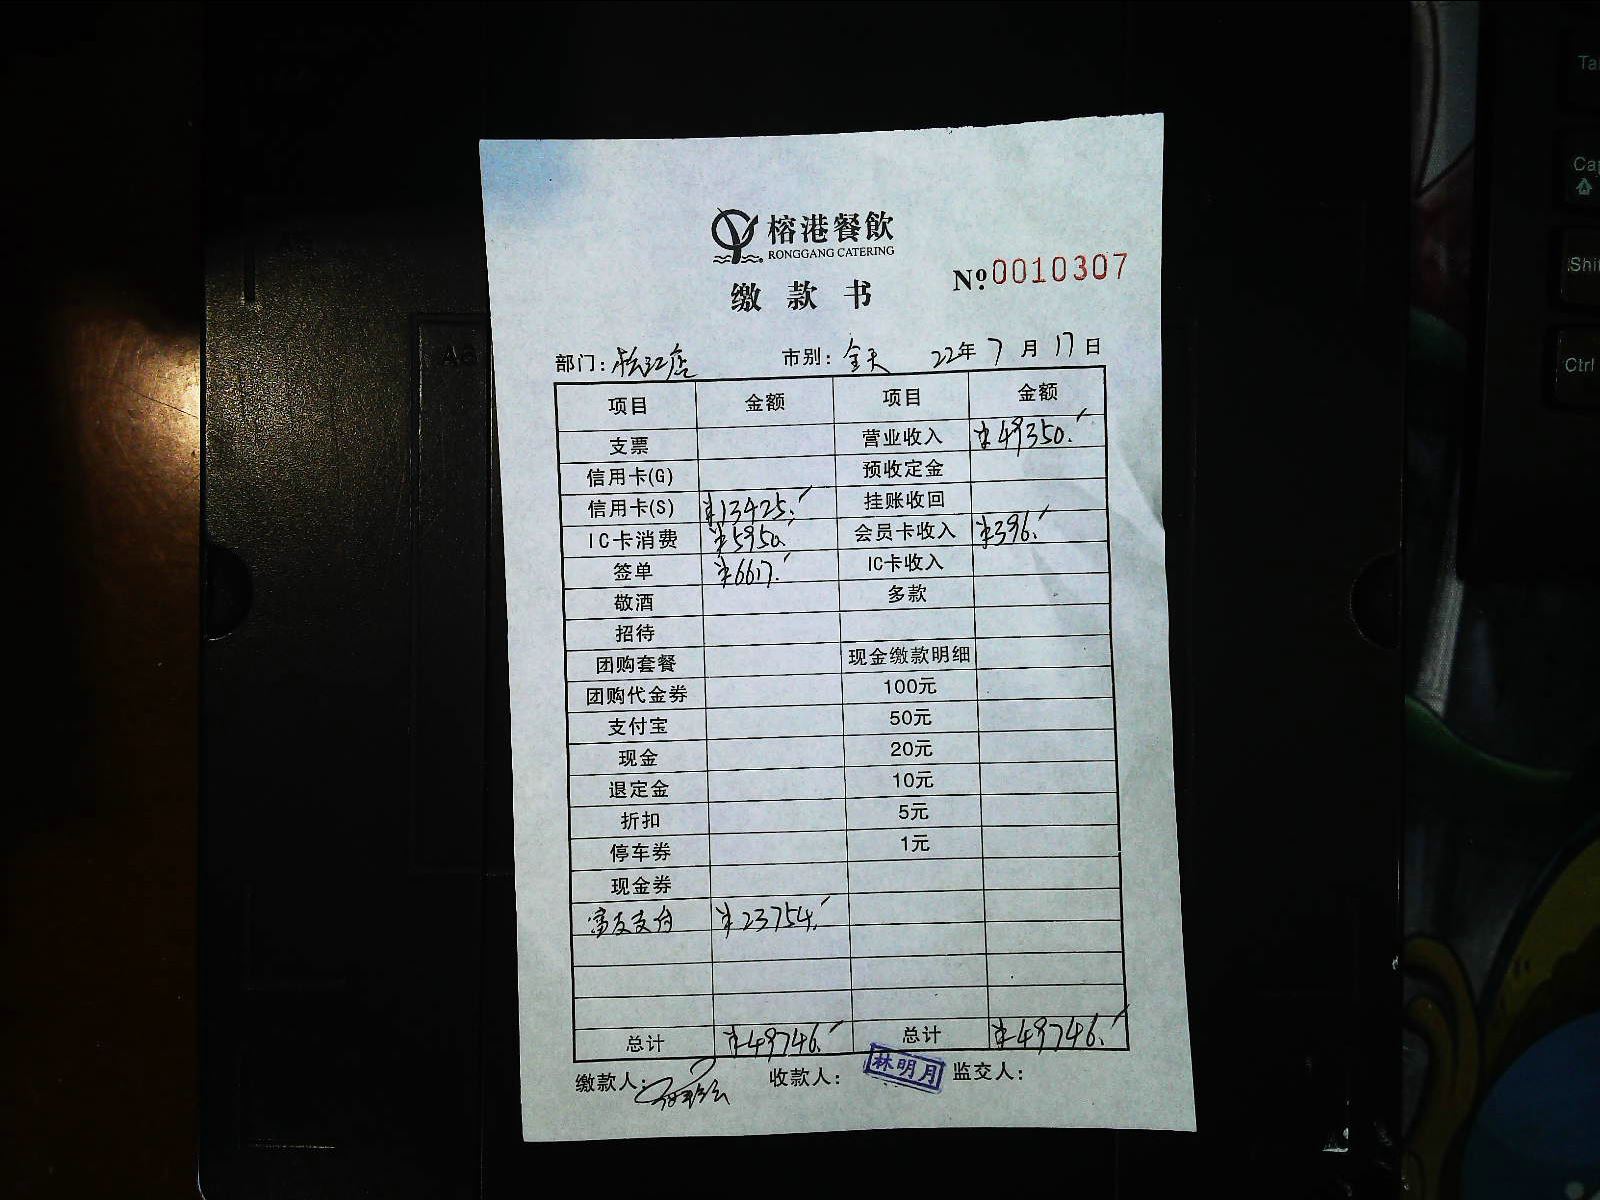 榕港餐飲
RONGGANG CATERING
缴款书
№ 0010307
部门：松江店 市别：全天 22年7月17日
项目 金额 项目 金额
支票 营业收入 ¥49350.
信用卡(G) 预收定金
信用卡(S) ¥13425. 挂账收回
IC卡消费 ¥5950. 会员卡收入 ¥396.
签单 ¥6617. IC卡收入
敬酒 多款
招待
团购套餐 现金缴款明细
团购代金券 100元
支付宝 50元
现金 20元
退定金 10元
折扣 5元
停车券 1元
现金券
富友支付 ¥23754.
总计 ¥49746. 总计 ¥49746.
缴款人： 收款人：林明月 监交人：
Ctrl